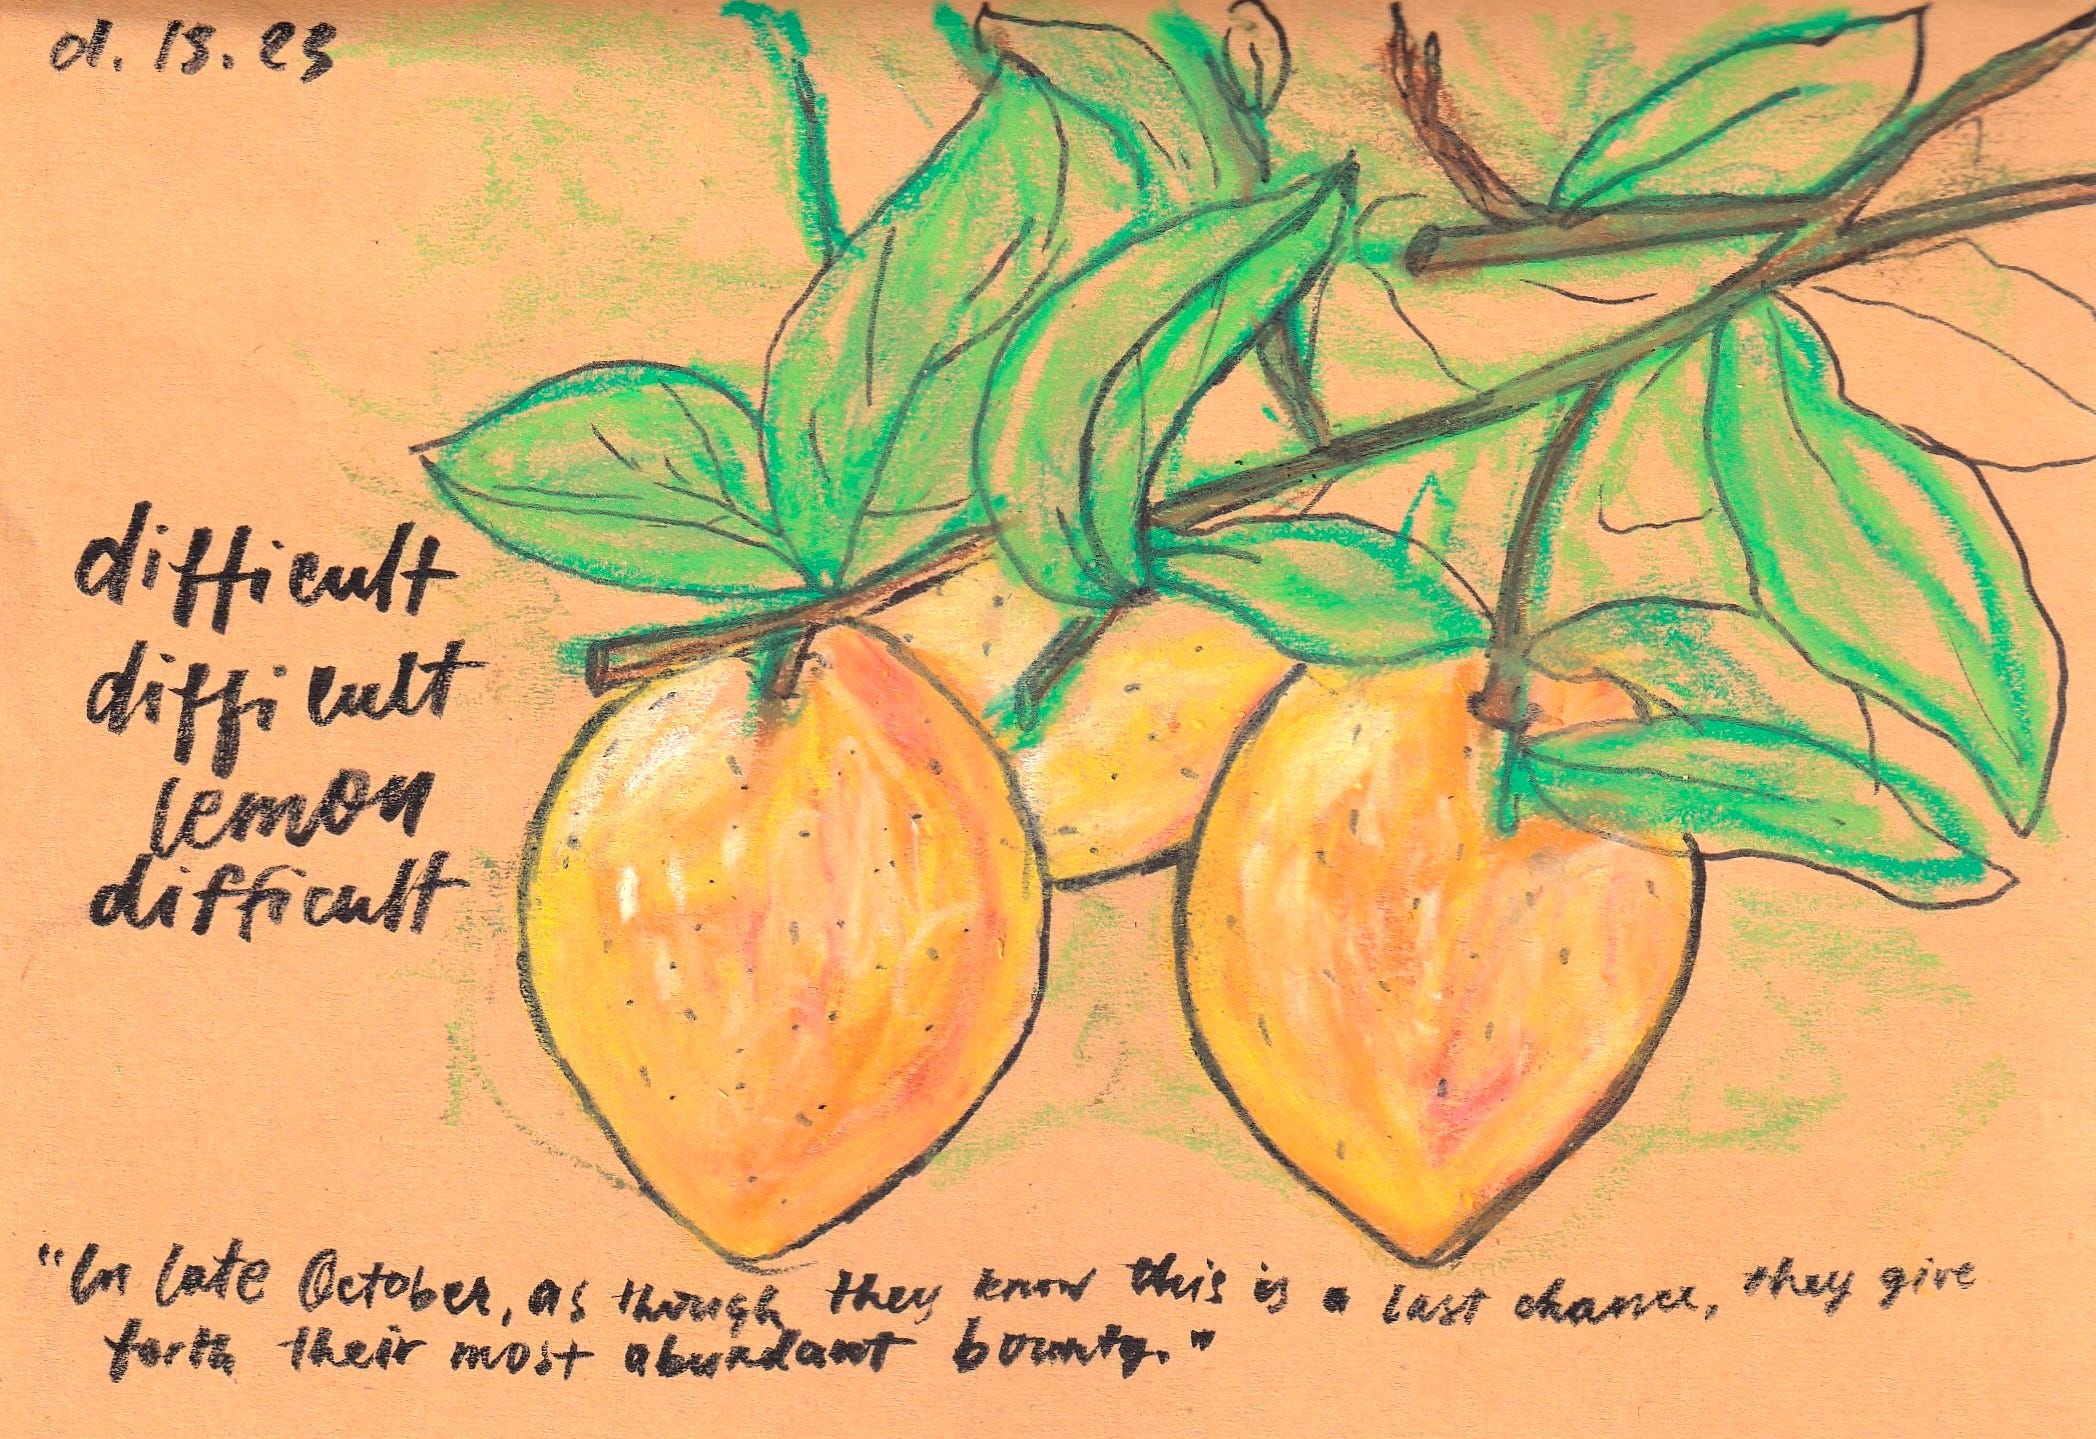 01.13.23
difficult
difficult
lemon
difficult
"In late October, as though they know this is a last chance, they give
forth their most abundant bounty."